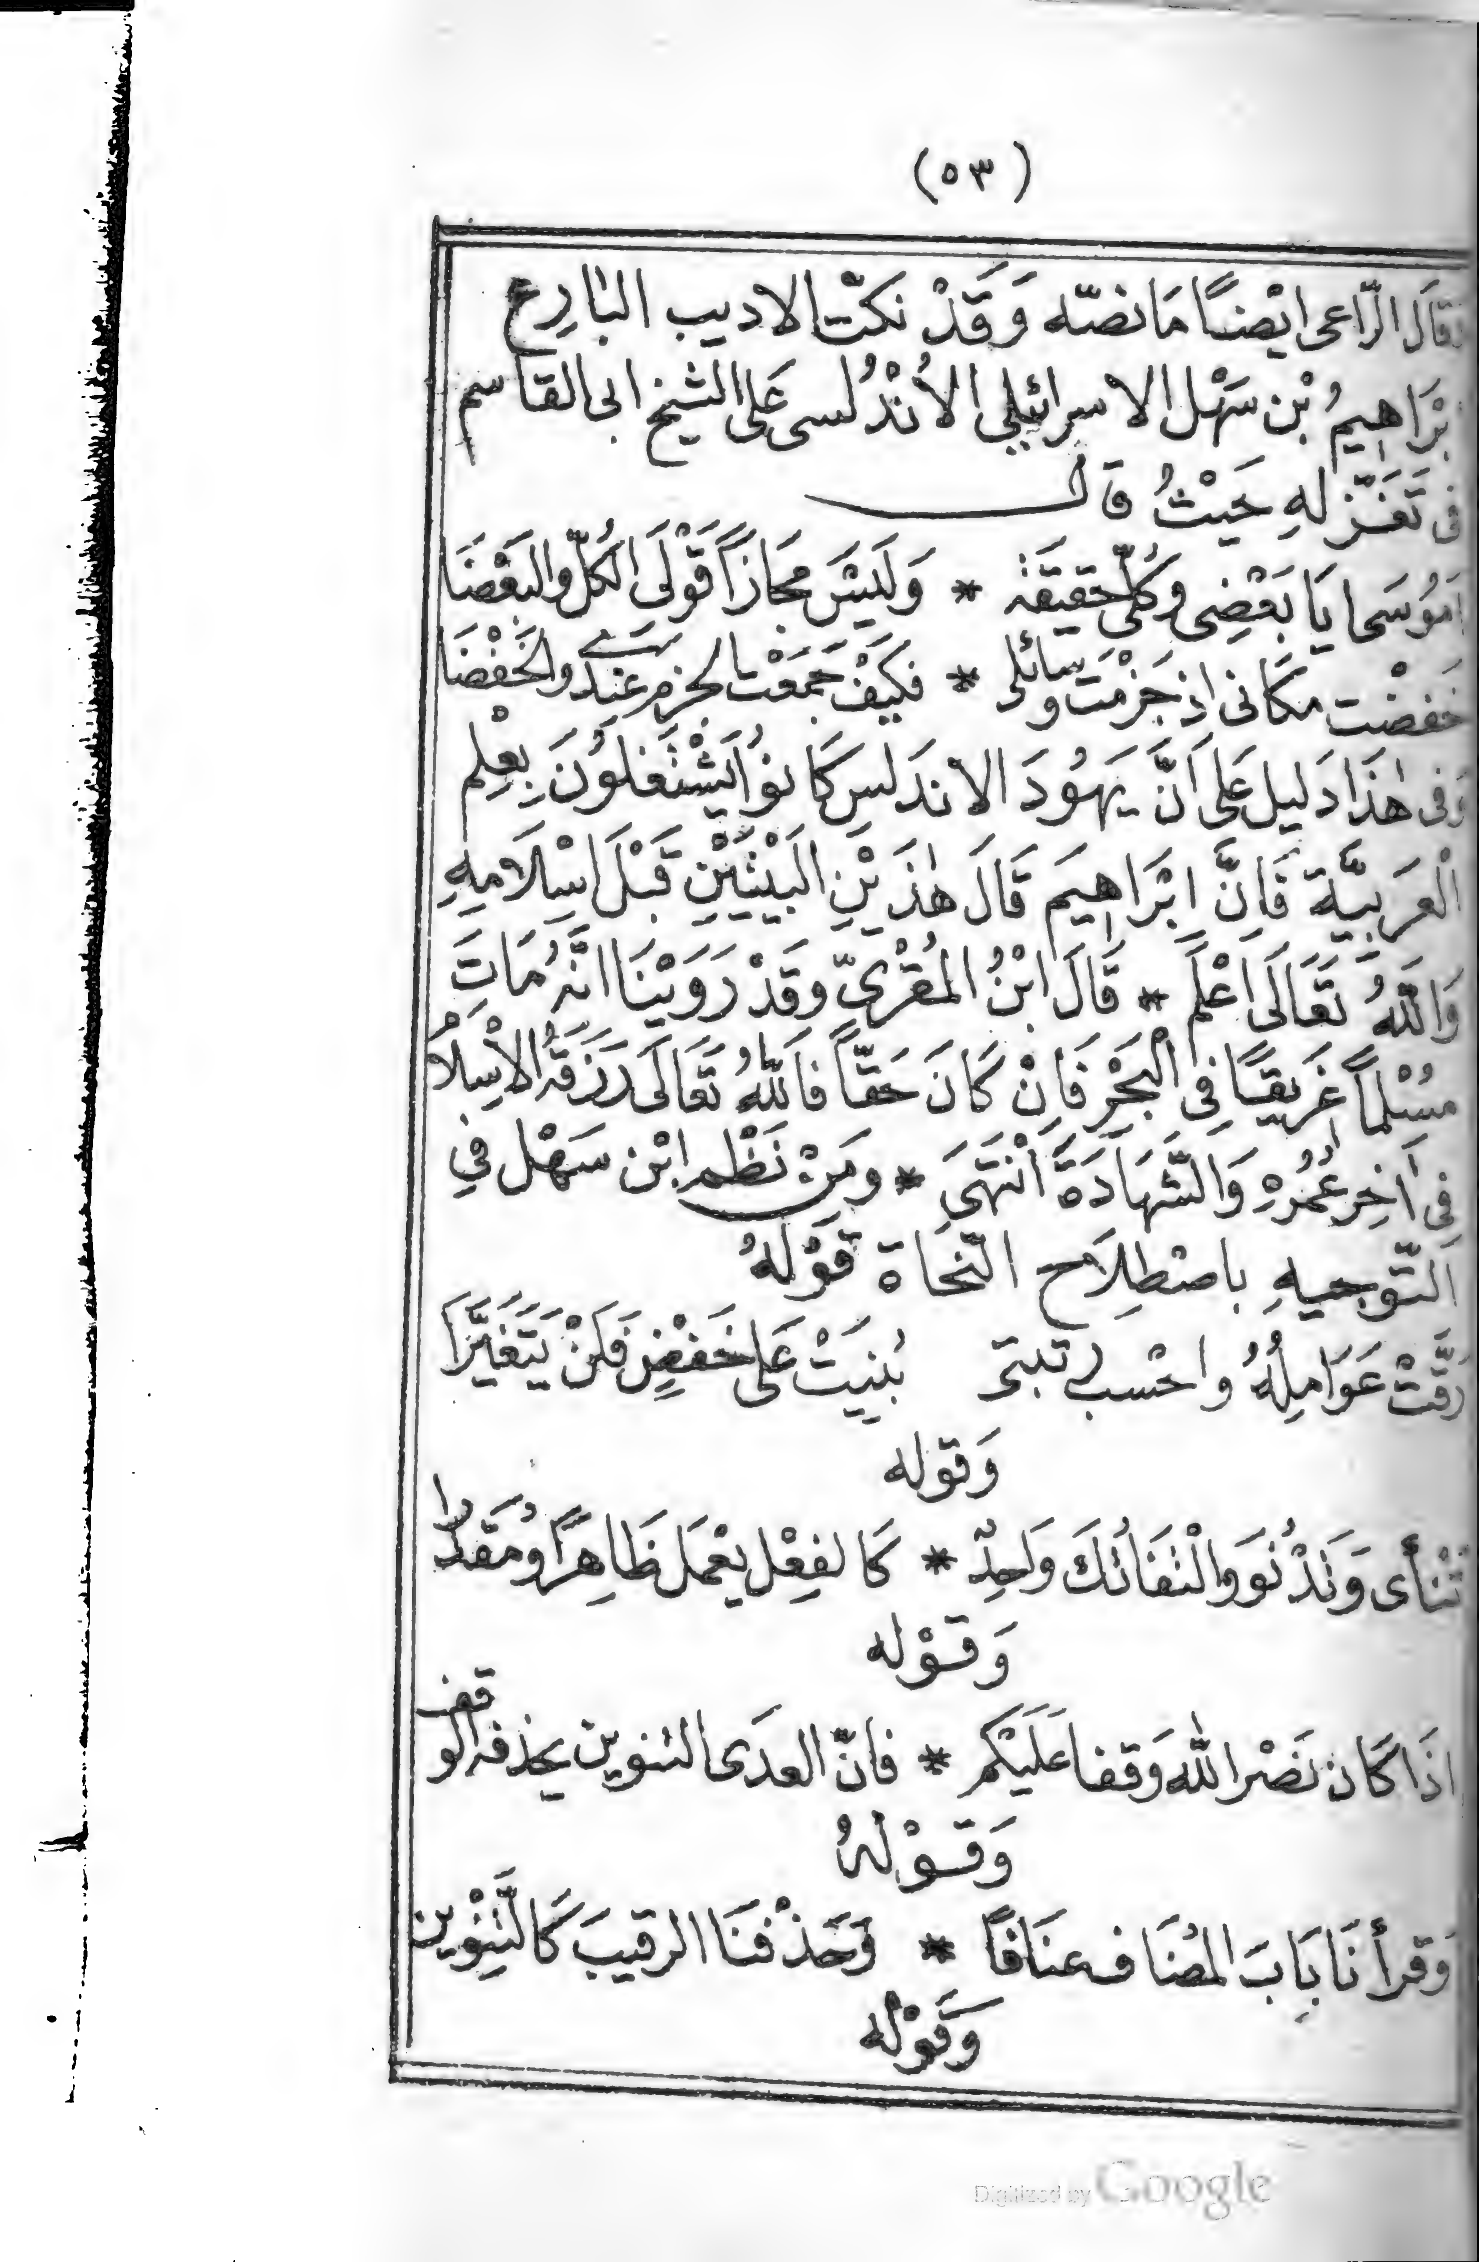 (٥٣)
وقَالَ الرّاعى ايْضًا مَا نصّه وَقَدْ نكّت الاديب البَارِع
إبْرَاهِيمُ بْن سَهْل الاسرائيلى الأنْدُلسى عَلى الشيخ ابى القاسم
فى تَغَزّلهِ حَيْثُ قال
اَمُوسَى ايَا بَعْضِى وكُلّى حَقيقَة * وَلَيسَ مجَازاً قَوْلَى الكُلّ والبَعْضَا
خَفضْت مكَانى اذ جَزمْتَ وسَائلى * فكَيْف جَمَعْت الجزم عِنْدى والخَفْضَا
وَفى هٰذَا دَليل عَلى اَنَّ يَهُودَ الاندَلس كَانوُا يَشْتَغلُونَ بِعْلِم
الْعَربيَّة فَاِنَّ ابْرَاهِيمَ قَالَ هٰذَيْنِ البَيْتَيْنِ قَبْلَ اسْلَامِهِ
وَاللّهُ تَعَالَى اَعْلَم * قَالَ ابْنُ المُقْرِىّ وقَدْ رَوَيْنَا انَّهُ مَاتَ
مُسْلماً غَرِيقًا فِى الْبَحْرِ فَاِنْ كَانَ حَقّاً فَاللّهُ تَعَالَى رَزَقَهُ الاْسْلَامَ
فِى اَخِر عُمُرهِ وَالشَّهَادَةَ اَنْتَهَى * ومِنْ نَظْم ابْن سَهْل فِي
التّوجيهِ باصْطِلَاح النّحَاة قَوْلُهُ
رَقَّتْ عَوَامِلُهُ واحْسب رتبتى بُنِيَتْ عَلى خَفضٍ فَلَنْ يَتَغَيَّرَا
وَقوله
تَنْأى وَتَدْنُوَ والْتفَاتُكَ وَاحِدٌ * كَالفِعْل يَعْمَلَ ظَاهِرًا وَمُقَدّرا
وَقَوْله
اذَا كَان نَصْر اللّه وَقفا عَلَيْكم * فانّ العدَى التنوين يحذفه الوقف
وَقَوْلهُ
وَقرأنَا بَابَ المُضَاف عنَاقًا * وَحَذفْنَا الرقيبَ كَالتَّنْوِين
وَقَوْله
Digitized by Google